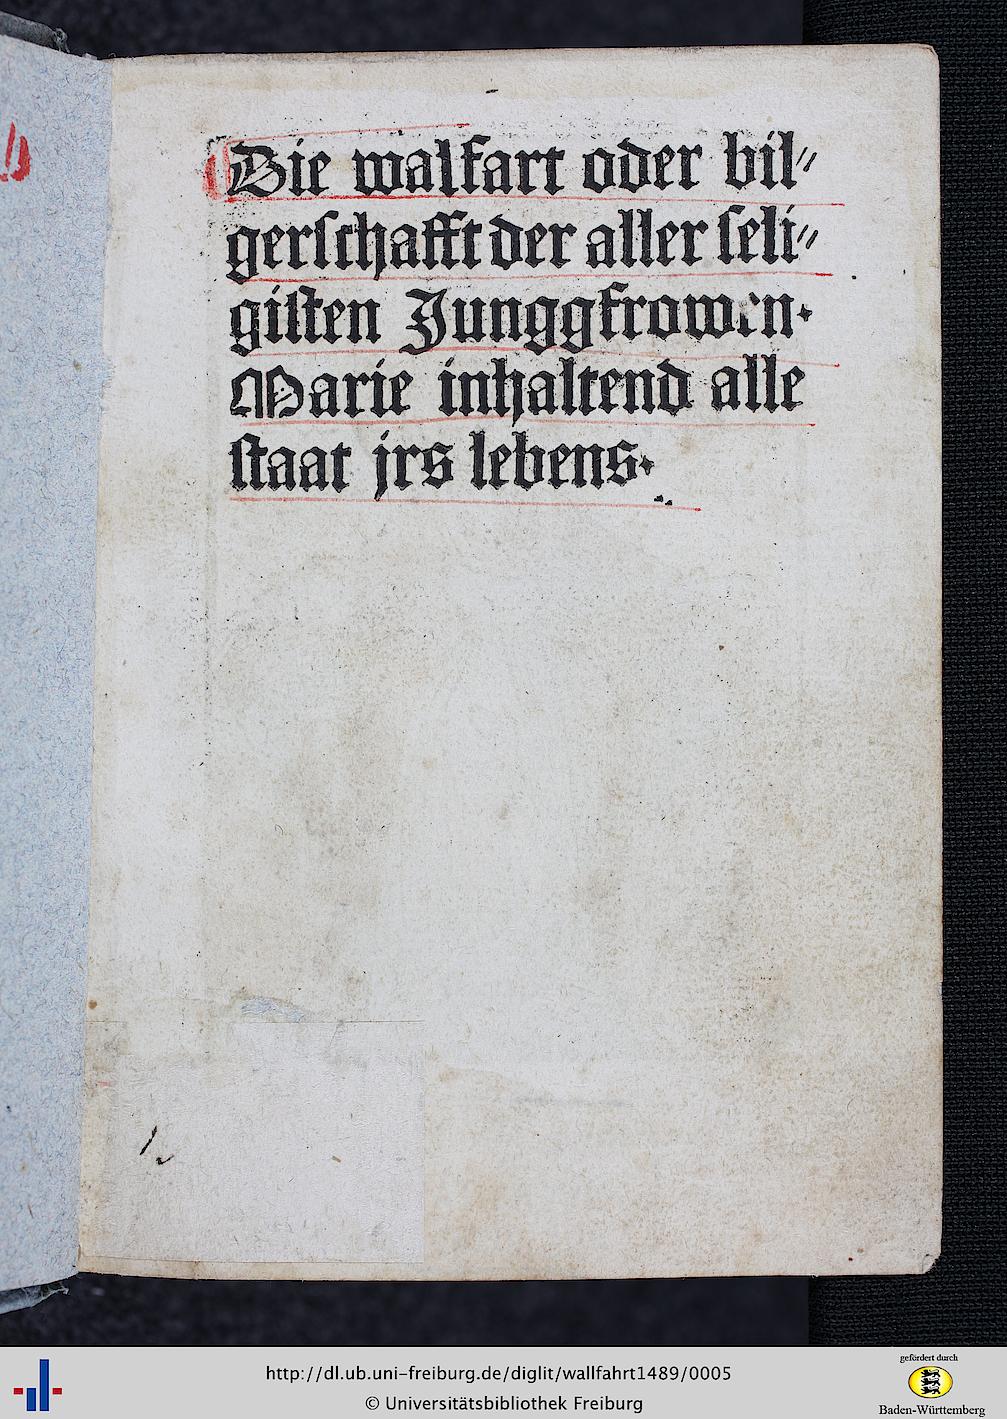 Die walfart oder bil⸗
gerſchafft der aller ſeli⸗
giſten Junggfrowen·
Marie inhaltend alle
ſtaat jrs lebens·
http://dl.ub.uni-freiburg.de/diglit/wallfahrt1489/0005
© Universitätsbibliothek Freiburg
gefördert durch
Baden-Württemberg